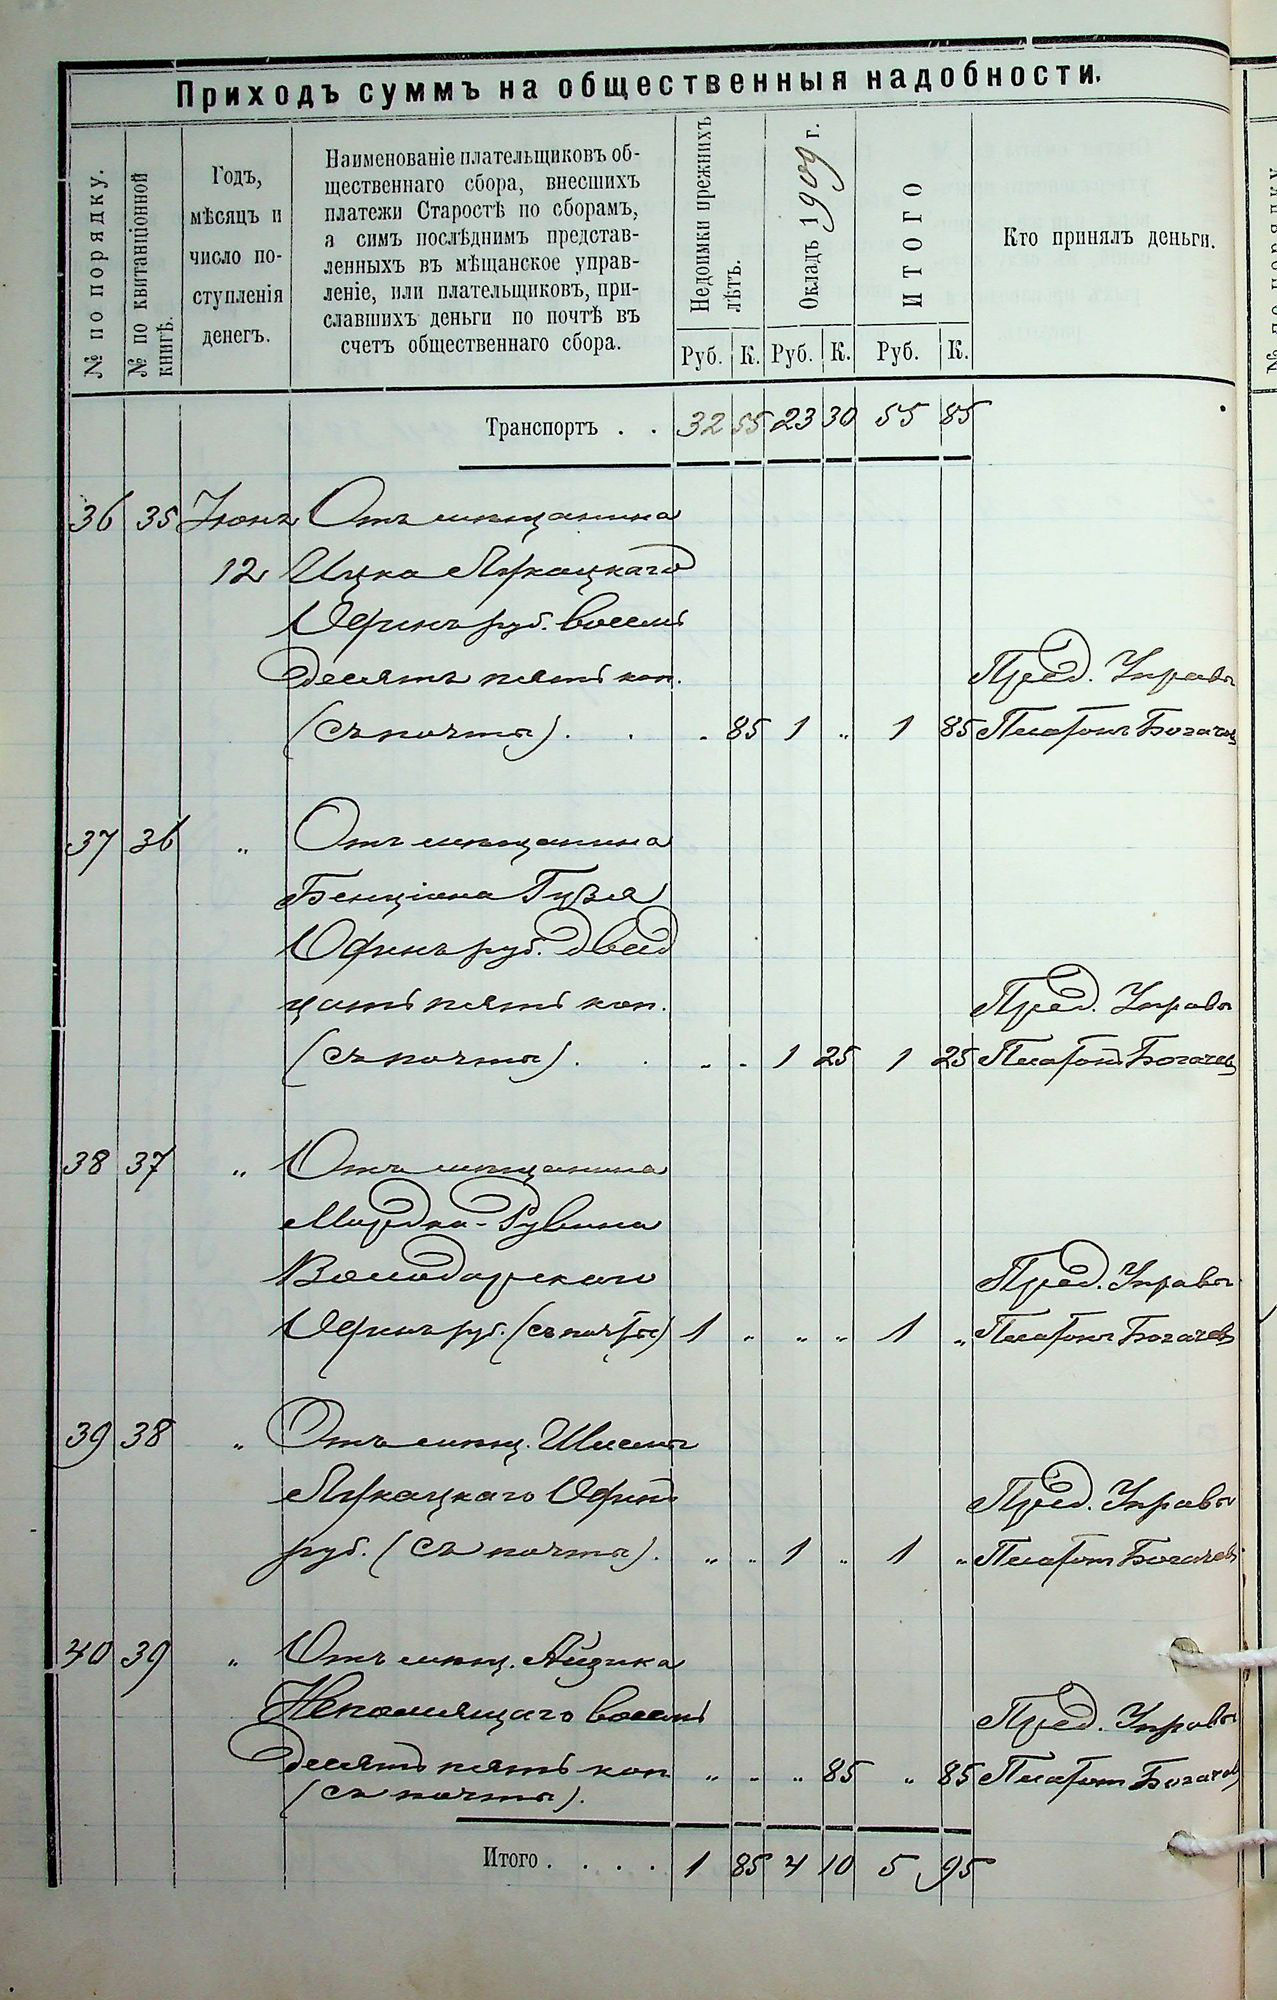 Приходъ суммъ на общественныя надобности.
№ по порядку.
№ по квитанціонной книгѣ.
Годъ,
мѣсяцъ и
число по-
ступленія
денегъ.
Наименованіе плательщиковъ об-
щественнаго сбора, внесшихъ
платежи Старостѣ по сборамъ,
а симъ послѣднимъ представ-
ленныхъ въ мѣщанское управ-
леніе, или плательщиковъ, при-
славшихъ деньги по почтѣ въ
счетъ общественнаго сбора.
Недоимки прежнихъ лѣтъ.
Окладъ 1909 г.
ИТОГО
Кто принялъ деньги.
Руб. К. Руб. К. Руб. К.
Транспортъ . . 32 55 23 30 55 85
36 35 Іюнь Отъ мѣщанина
12 Ицка
Одинъ руб. восемь
десятъ пять коп. Пред. Управы
(съ почты) . . . 85 1 „ 1 85 Платонъ Богачев
37 36 „ Отъ мѣщанина
Бенціана Гузя
Одинъ руб. двад
цать пять коп. Пред. Управы
(съ почты) . . „ „ 1 25 1 25 Платонъ Богачев
38 37 „ Отъ мѣщанина
Мордка-Рувина
Володарского Пред. Управы
Одинъ руб. (съ почты) 1 „ „ „ 1 „ Платонъ Богачев
39 38 „ Отъ мѣщ. Шлемы
Одинъ Пред. Управы
руб. (съ почты). „ „ 1 „ 1 „ Платонъ Богачев
40 39 „ Отъ мѣщ. Айзика
Непомнящаго восемь Пред. Управы
десять пять коп „ „ „ 85 „ 85 Платонъ Богачев
(съ почты).
Итого . . . . 1 85 4 10 5 95